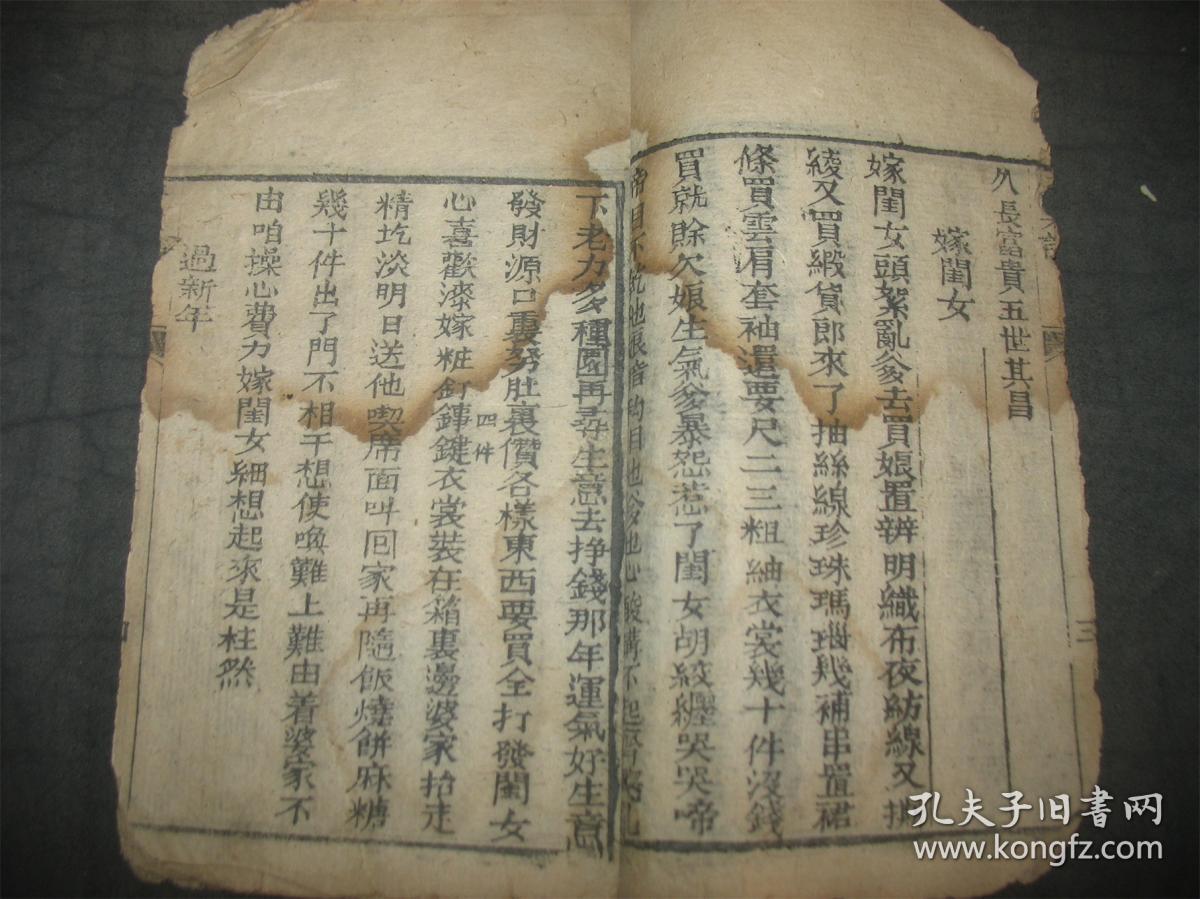 久長富貴五世其昌
嫁閨女
嫁閨女頭絮亂爹去買娘置辨明織布夜紡線又
綾又買緞貨郎來了抽絲線珍珠瑪瑙幾補串置裙
條買雲肩套袖還要尺二三粗紬衣裳幾十件沒錢
買就賖欠娘生氣爹暴怨惹了閨女胡絞纏哭哭啼
下老力多種園再尋生意去挣錢那年運氣好生意
發財源口裏努肚裏儹各樣東西要買全打發閨女
心喜歡漆嫁粧釘鋛鍵衣裳裝在箱裏邊婆家抬走
四件
精圪淡明日送他喫席面叫囘家再隨飯燒餅麻糖
幾十件出了門不相干想使喚難上難由着婆家不
由咱操心費力嫁閨女細想起來是枉然
過新年
三
孔夫子旧书网
www.kongfz.com